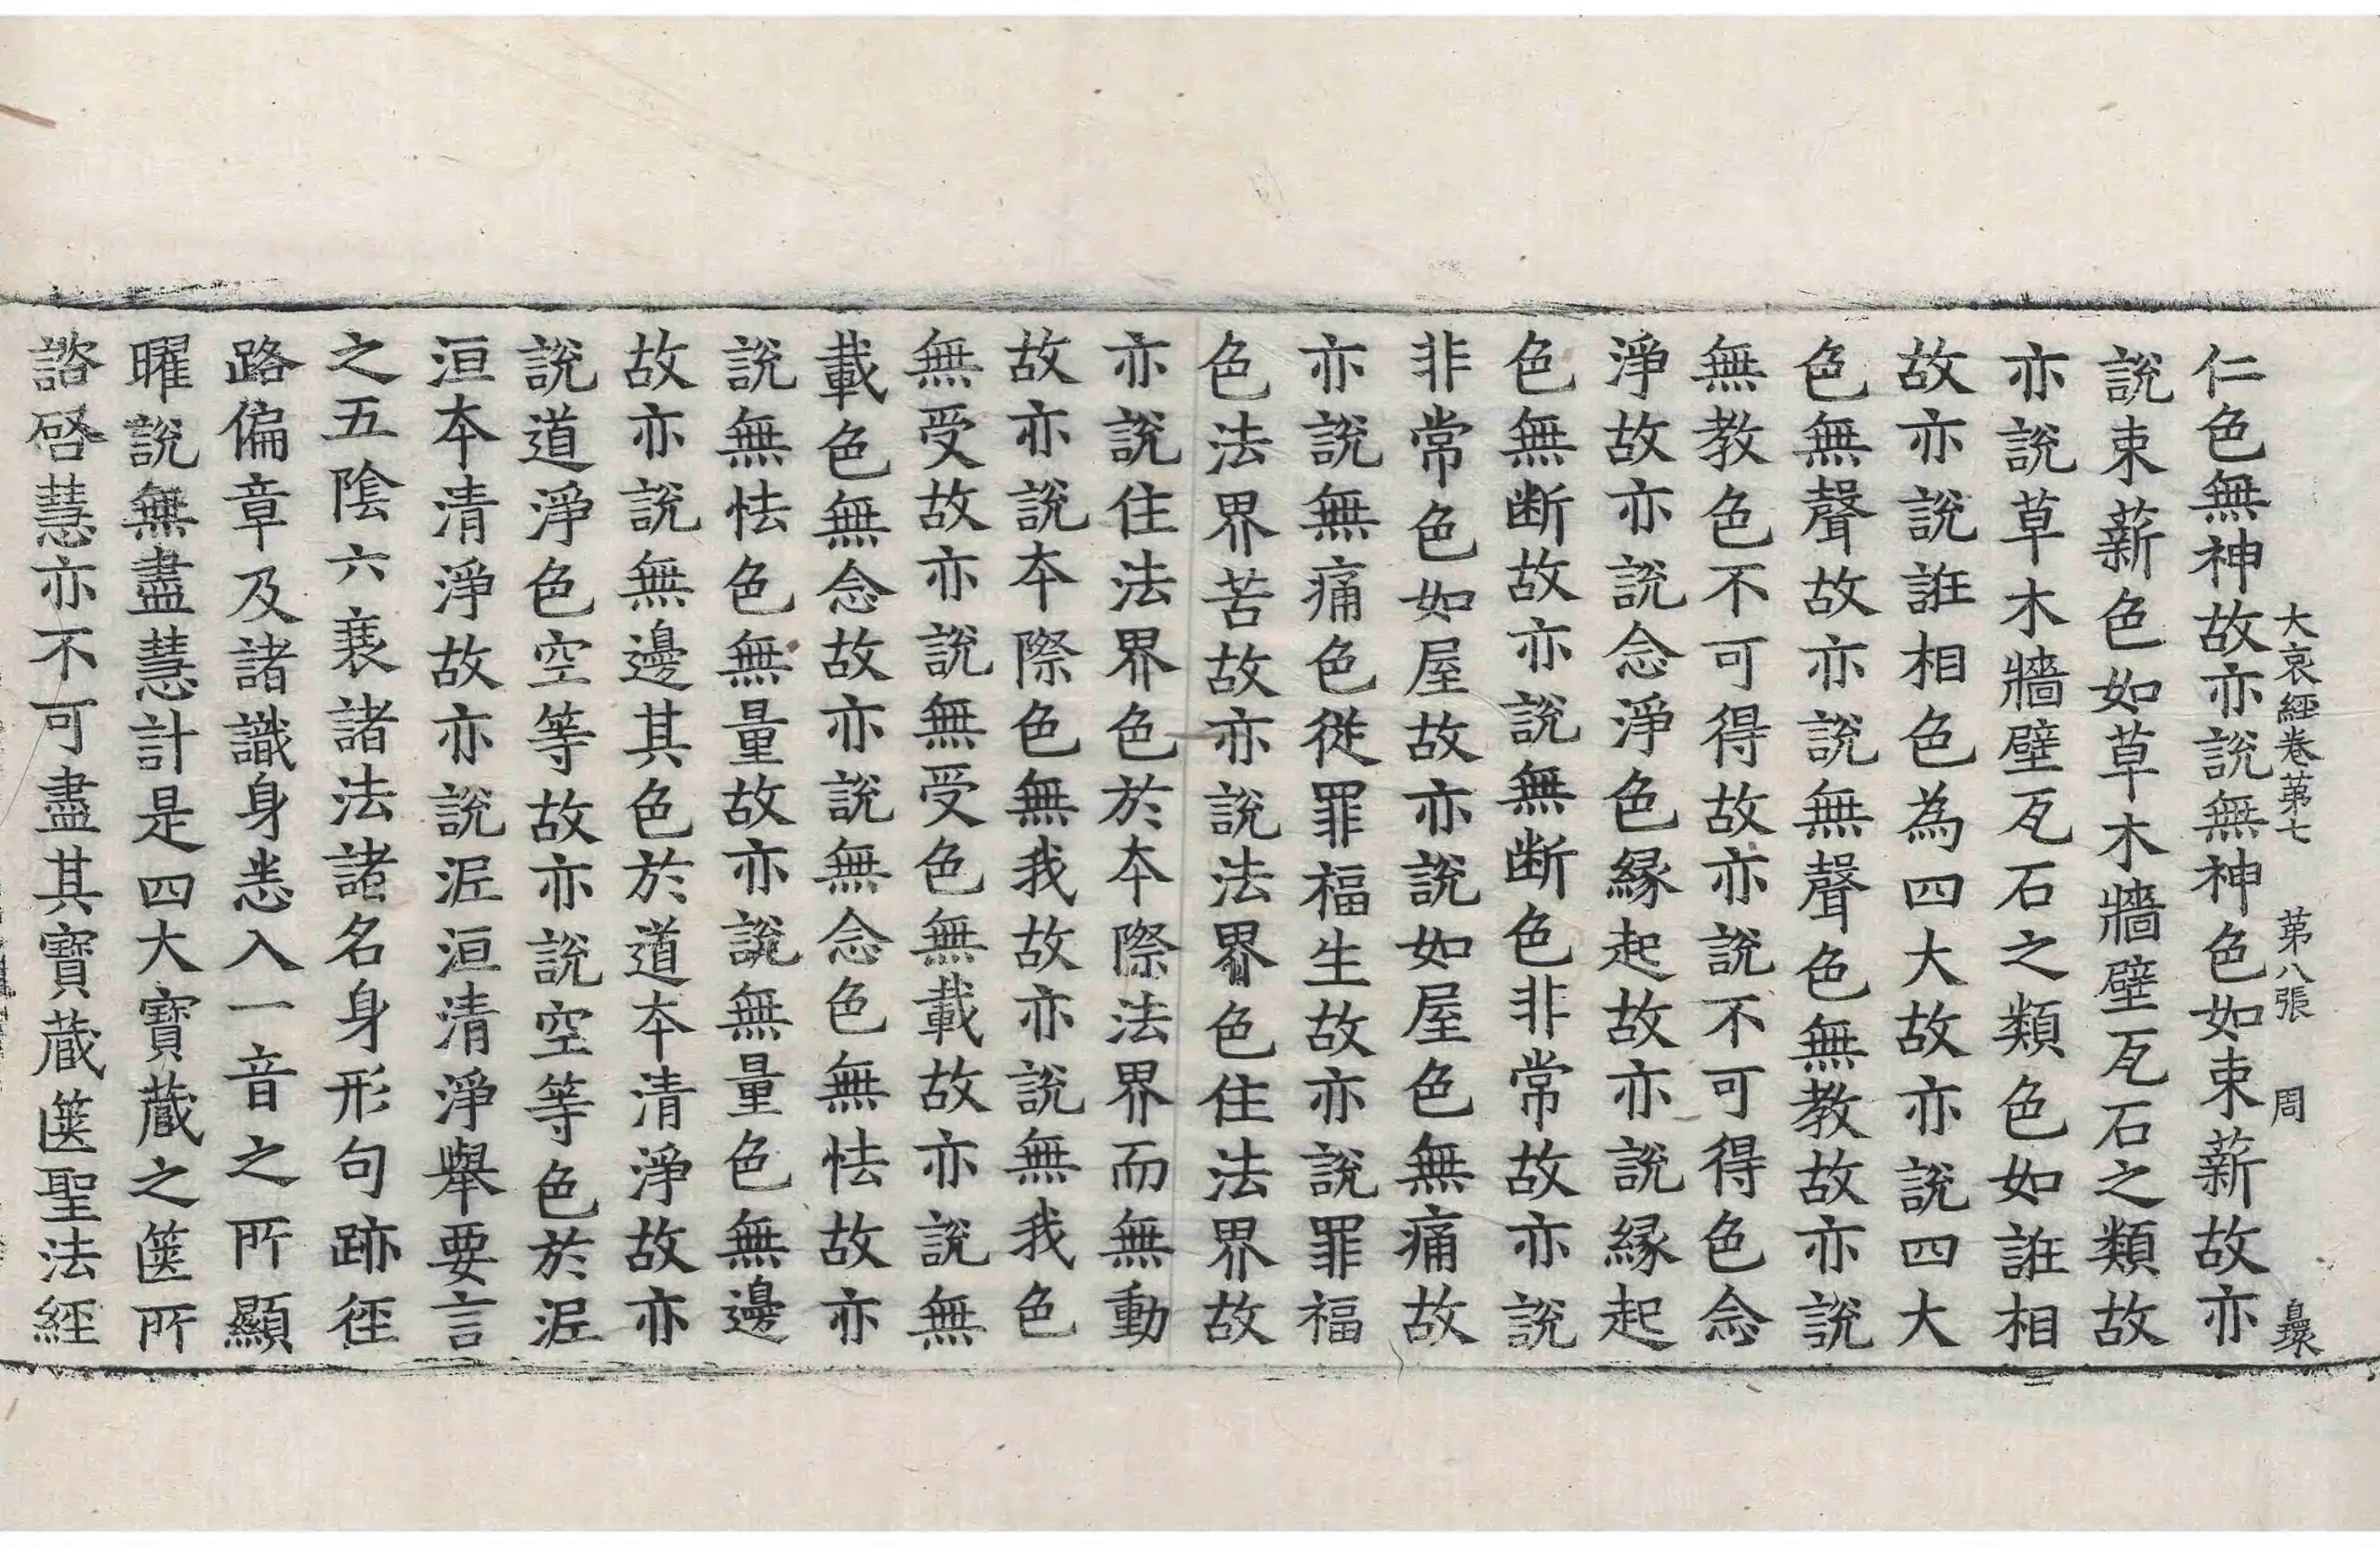 大哀經卷第七 第八張 周
仁色無神故亦說無神色如束薪故亦
說束薪色如草木牆壁瓦石之類故
亦說草木牆壁瓦石之類色如誑相
故亦說誑相色為四大故亦說四大
色無聲故亦說無聲色無教故亦說
無教色不可得故亦說不可得色念
淨故亦說念淨色縁起故亦說縁起
色無断故亦說無断色非常故亦說
非常色如屋故亦說如屋色無痛故
亦說無痛色從罪福生故亦說罪福
色法界苦故亦說法界色住法界故
亦說住法界色於本際法界而無動
故亦說本際色無我故亦說無我色
無受故亦說無受色無載故亦說無
載色無念故亦說無念色無怯故亦
說無怯色無量故亦說無量色無邊
故亦說無邊其色於道本清淨故亦
說道淨色空等故亦說空等色於泥
洹本清淨故亦說泥洹清淨舉要言
之五陰六衰諸法諸名身形句跡徑
路偏章及諸識身悉入一音之所顯
曜說無盡慧計是四大寶藏之篋所
諮啓慧亦不可盡其寶蔵篋聖法經